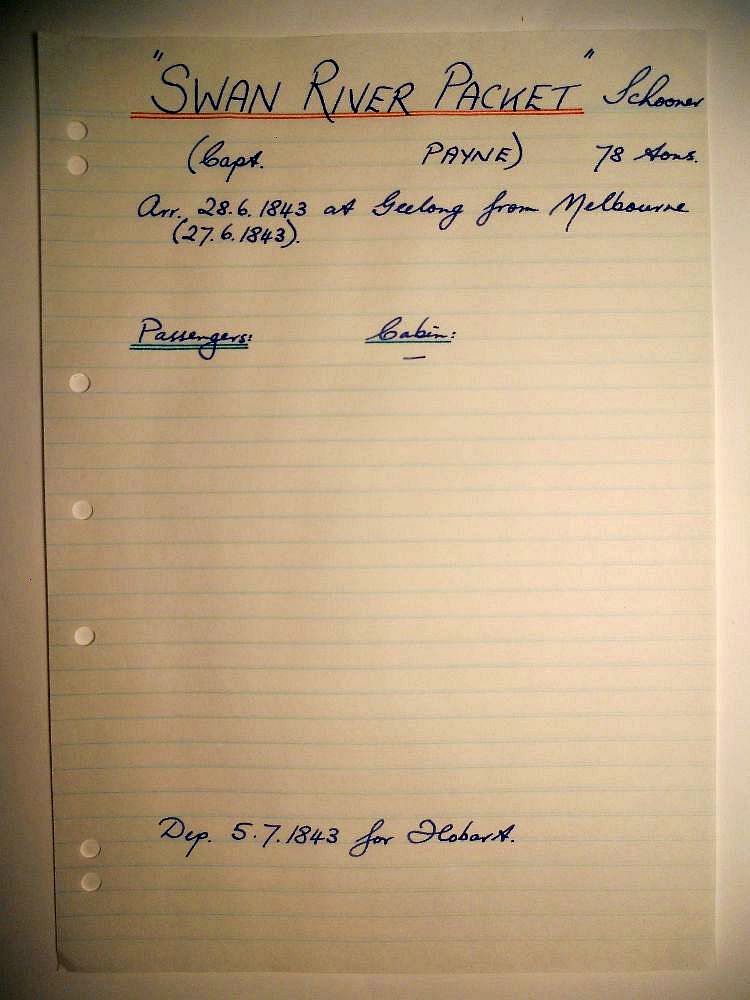 "SWAN RIVER PACKET" Schooner
(Capt. PAYNE) 78 tons.
Arr. 28.6.1843 at Geelong from Melbourne
(27.6.1843).
Passengers: Cabin:
—
Dep. 5.7.1843 for Hobart.